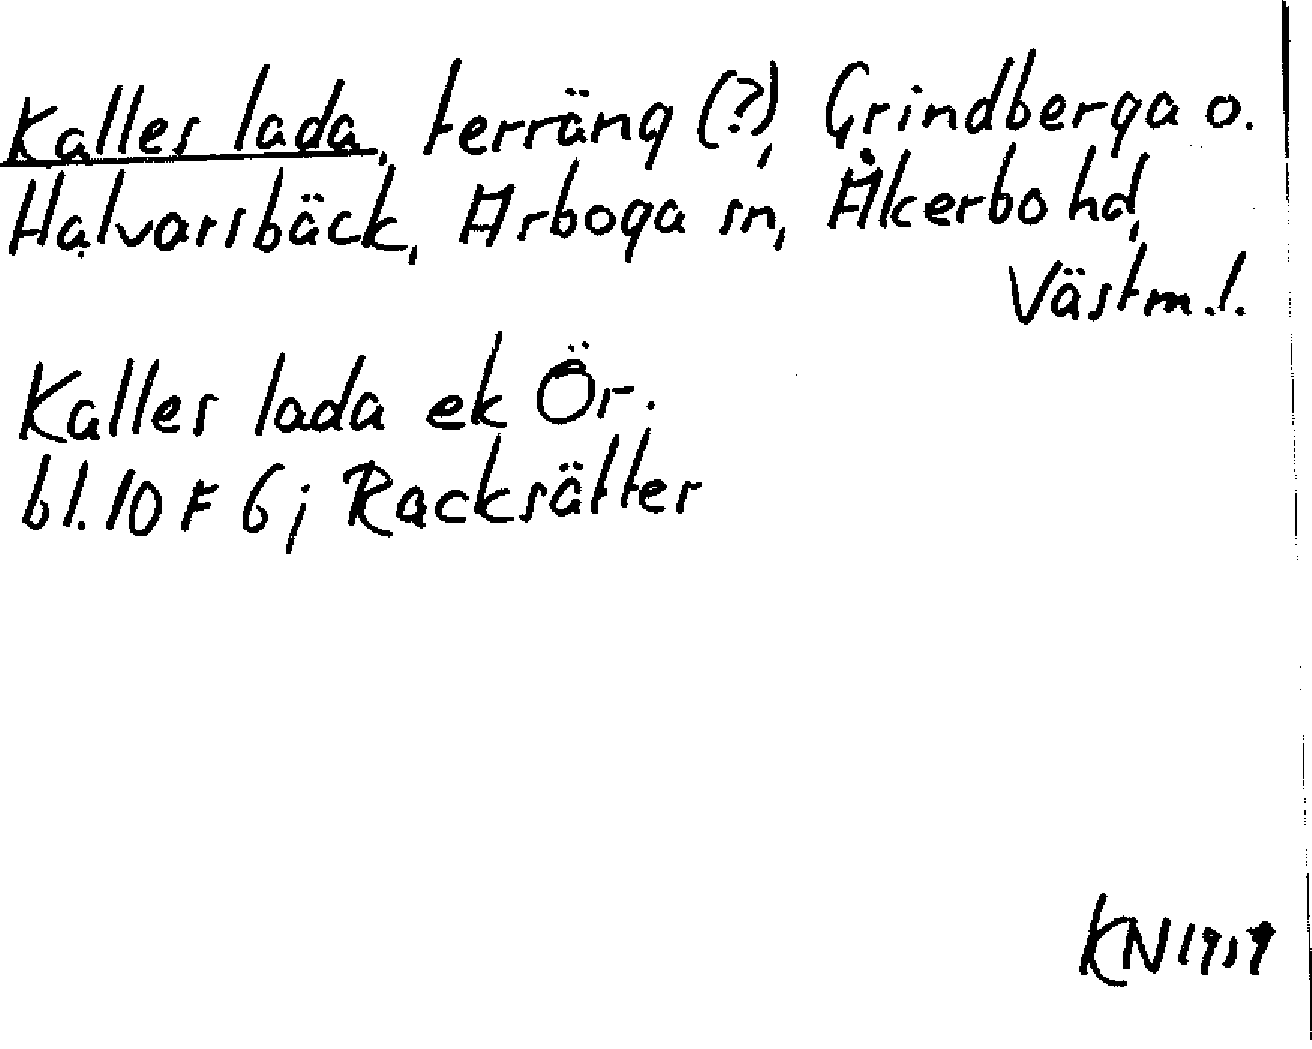 Kalles lada, terräng (?), Grindberga o.
Halvarsbäck, Arboga sn, Åkerbo hd,
Västm. l.
Kalles lada ek Ör.
bl. 10 F 6j Racksätter
KN